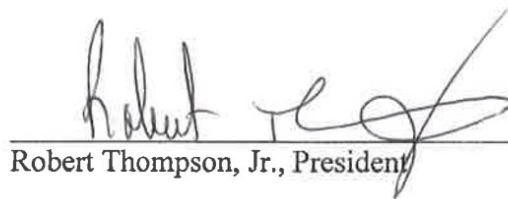 Robert Th
Robert Thompson, Jr., President